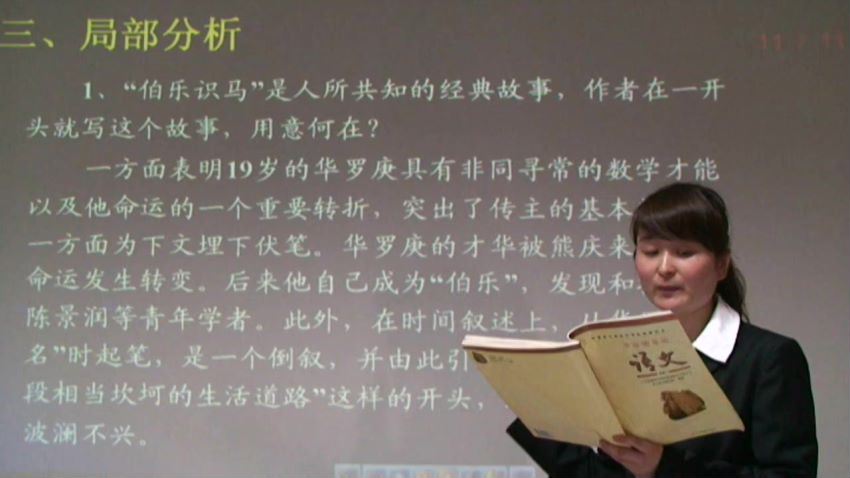 三、局部分析
1、“伯乐识马”是人所共知的经典故事，作者在一开
头就写这个故事，用意何在？
一方面表明19岁的华罗庚具有非同寻常的数学才能
以及他命运的一个重要转折，突出了传主的基本
一方面为下文埋下伏笔。华罗庚的才华被熊庆来
命运发生转变。后来他自己成为“伯乐”，发现和
陈景润等青年学者。此外，在时间叙述上，从华
名”时起笔，是一个倒叙，并由此引
段相当坎坷的生活道路”这样的开头，
波澜不兴。
语文